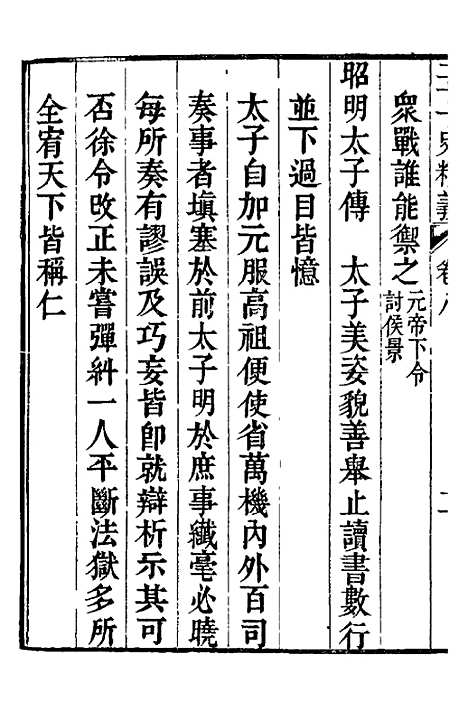 衆戰誰能禦之元帝下令
討侯景
昭明太子傳　太子美姿貌善舉止讀書數行
並下過目皆憶
太子自加元服高祖便使省萬機內外百司
奏事者塡塞於前太子明於庶事纖毫必曉
每所奏有謬誤及巧妄皆卽就辯析示其可
否徐令改正未嘗彈糾一人平斷法獄多所
全宥天下皆稱仁